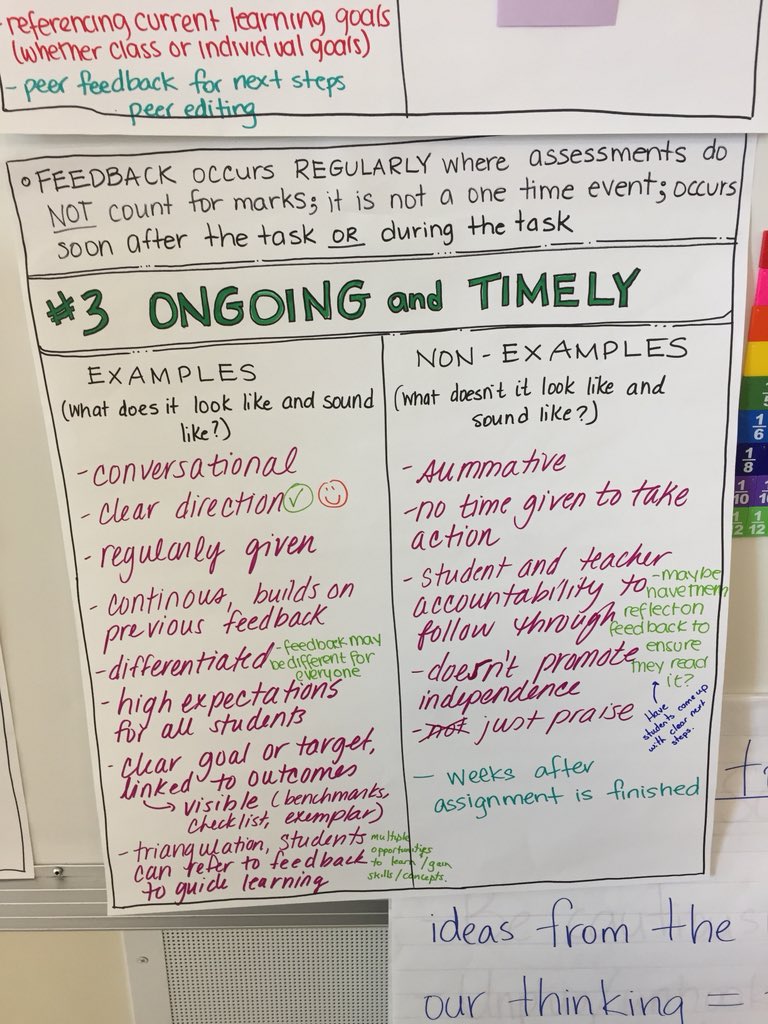 -referencing current learning goals
(whether class or individual goals)
- peer feedback for next steps
peer editing
• FEEDBACK occurs REGULARLY where assessments do
NOT count for marks; it is not a one time event; occurs
soon after the task OR during the task
#3 ONGOING and TIMELY
EXAMPLES
(what does it look like and sound
like?)
- conversational
- clear direction ✓ ☺
- regularly given
- continous, builds on
previous feedback
- differentiated
- feedback may
be different for
everyone
- high expectations
for all students
- clear goal or target,
linked to outcomes
↳ visible (benchmarks,
checklist, exemplar)
- triangulation, students
can refer to feedback
to guide learning
multiple
opportunities
to learn/gain
skills/concepts.
NON-EXAMPLES
(what doesn't it look like and
sound like?)
- summative
- no time given to take
action
- student and teacher
accountability to
follow through
- maybe
have them
reflect on
feedback to
ensure
they read
it?
↑
Have
students come up
with clear next
steps.
- doesn't promote
independence
- just praise
- weeks after
assignment is finished
1/6
1/8
1/10
1/12 1/12
ideas from the
our thinking =